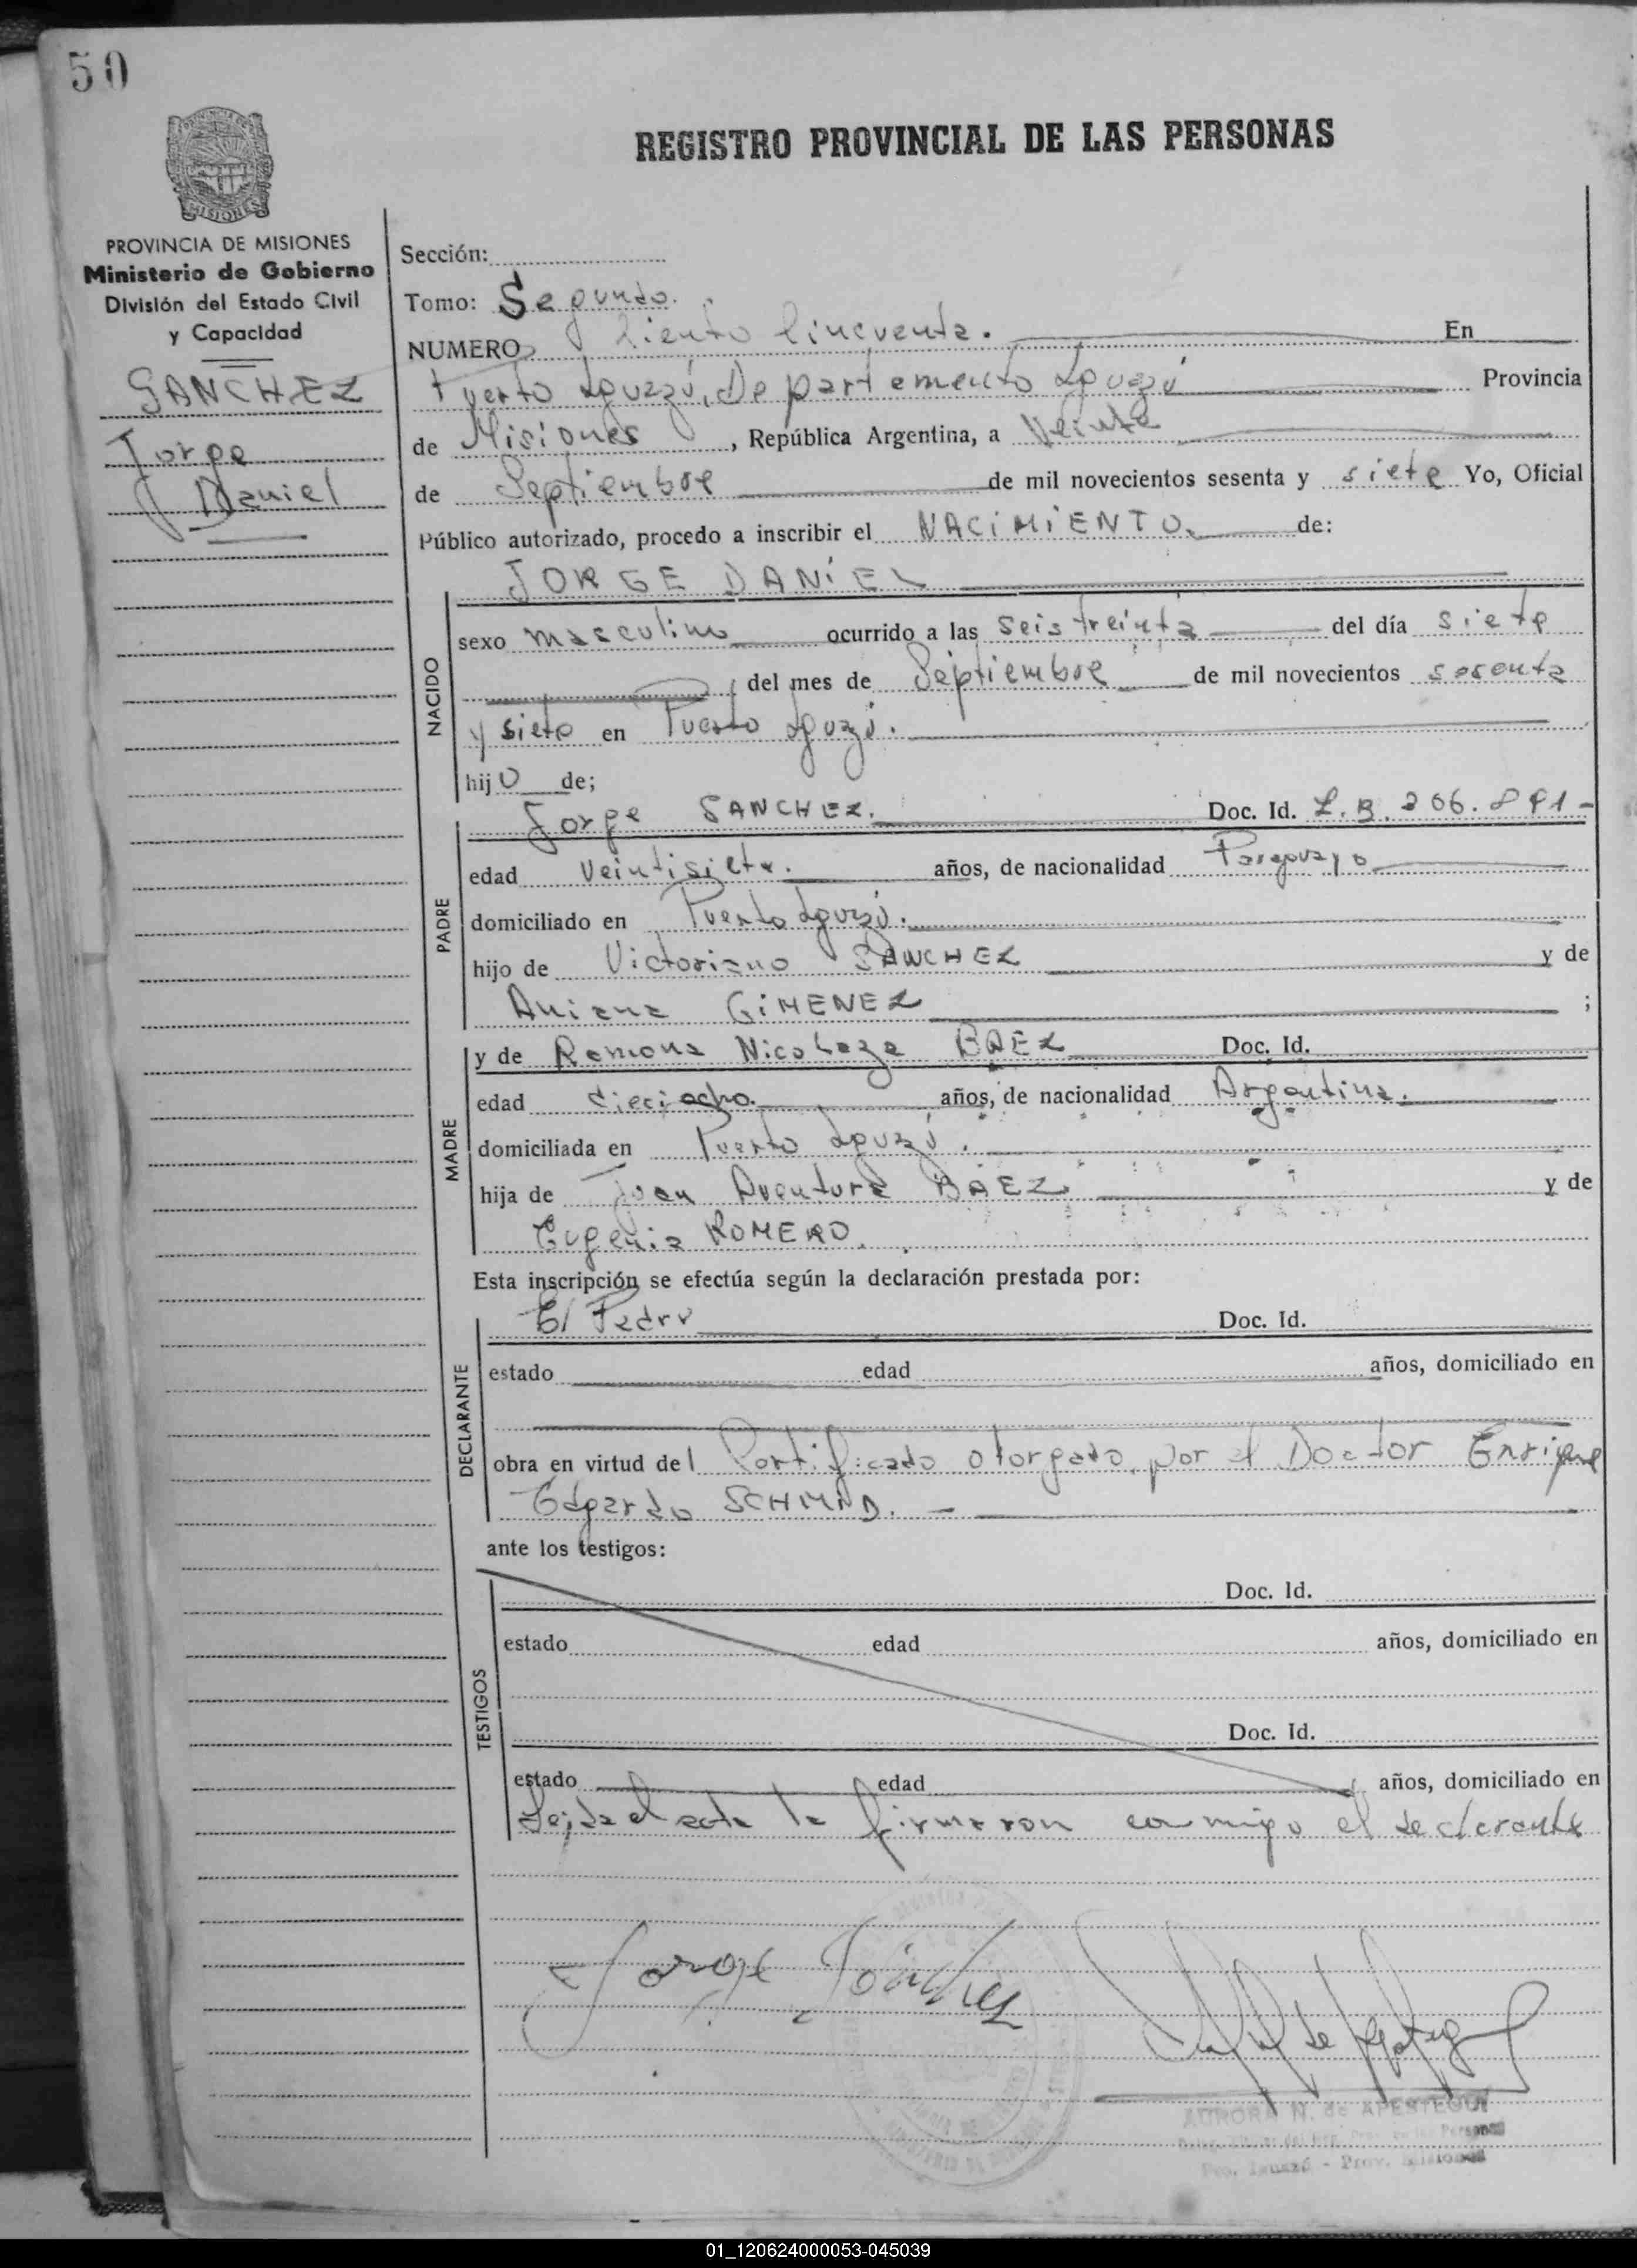 50
MISIONES
REGISTRO PROVINCIAL DE LAS PERSONAS
PROVINCIA DE MISIONES
Ministerio de Gobierno
División del Estado Civil
y Capacidad
SANCHEZ
Jorge
Daniel
Sección:
Tomo: Segundo.
NUMERO Ciento Cincuenta. En
Puerto Iguazú, Departamento Iguazú Provincia
de Misiones, República Argentina, a Veinte
de Septiembre de mil novecientos sesenta y siete Yo, Oficial
Público autorizado, procedo a inscribir el NACIMIENTO. de:
JORGE DANIEL
NACIDO
sexo masculino ocurrido a las seis treinta del día siete
del mes de Septiembre de mil novecientos sesenta
y siete en Puerto Iguazú.
hijo de;
PADRE
Jorge SANCHEZ. Doc. Id.
edad veintisiete. años, de nacionalidad Paraguayo
domiciliado en Puerto Iguazú.
hijo de Victoriano SANCHEZ y de
Aniana GIMENEZ ;
MADRE
y de Ramona Nicolaza BAEZ Doc. Id.
edad dieciocho. años, de nacionalidad Argentina.
domiciliada en Puerto Iguazú.
hija de Juan Aventura BAEZ y de
Eugenia ROMERO.
Esta inscripción se efectúa según la declaración prestada por:
DECLARANTE
El Padre Doc. Id.
estado edad años, domiciliado en
obra en virtud del Certificado otorgado, por el Doctor Enrique
Edgardo SCHMID. -
ante los testigos:
TESTIGOS
Doc. Id.
estado edad años, domiciliado en
Doc. Id.
estado edad años, domiciliado en
Leida el acta la firmaron conmigo el declarante
Jorge Sánchez
AURORA N. de APESTEGUI
Pto. Iguazú - Prov. Misiones
01_120624000053-045039